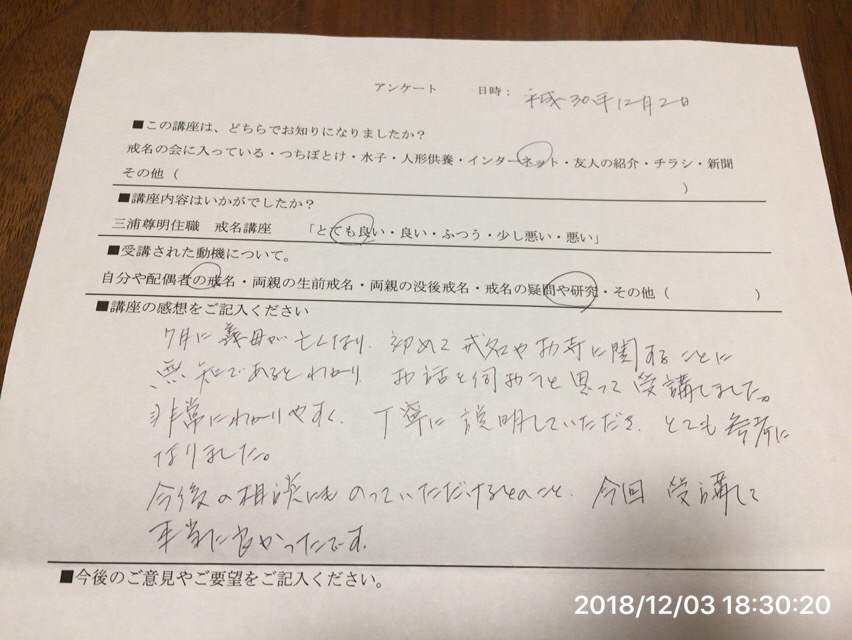 アンケート 日時： 平成30年12月2日
■この講座は、どちらでお知りになりましたか？
戒名の会に入っている・つちぼとけ・水子・人形供養・インターネット・友人の紹介・チラシ・新聞
その他（ ）
■講座内容はいかがでしたか？
三浦尊明住職 戒名講座 「とても良い・良い・ふつう・少し悪い・悪い」
■受講された動機について。
自分や配偶者の戒名・両親の生前戒名・両親の没後戒名・戒名の疑問や研究・その他（ ）
■講座の感想をご記入ください
7月に義母が亡くなり、初めて戒名やお寺に関することに
無知であるとわかり、お話を伺おうと思って受講しました。
非常にわかりやすく、丁寧に説明していただき、とても参考に
なりました。
今後の相談にものっていただけるとのこと、今回受講して
本当に良かったです。
■今後のご意見やご要望をご記入ください。
2018/12/03 18:30:20